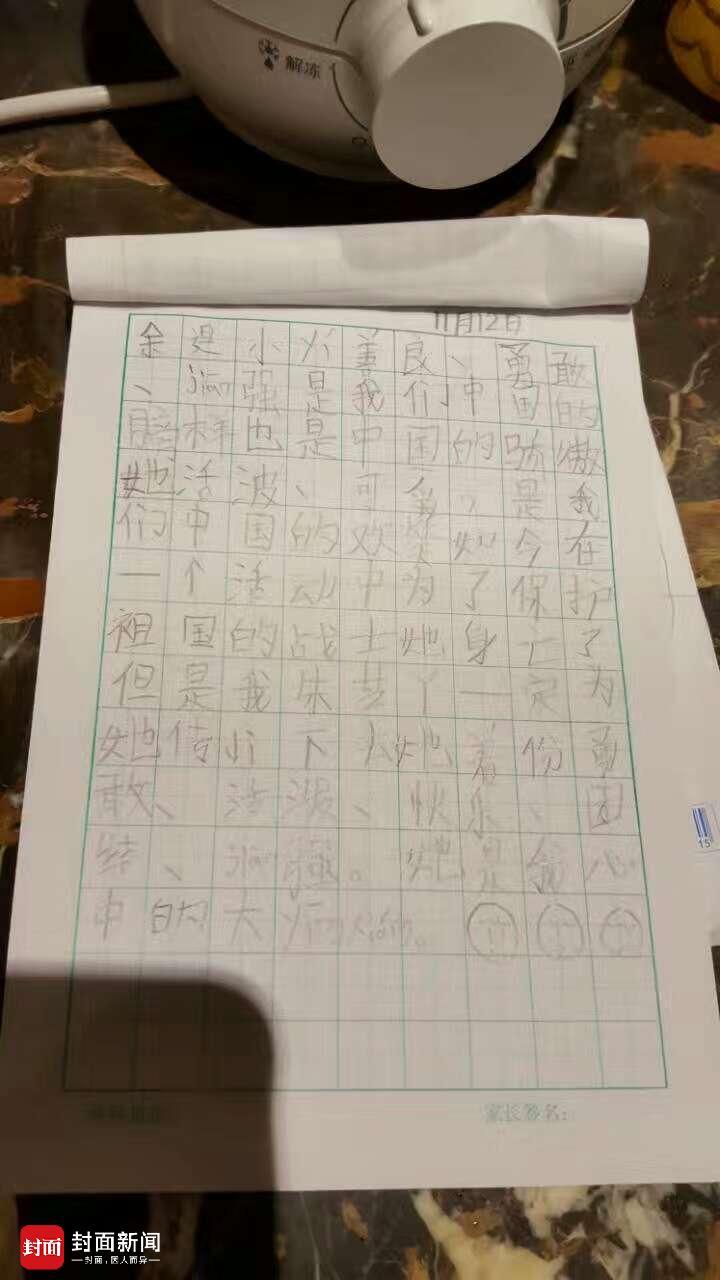 解冻
11月12日
余是小善良、勇敢
、强是我们中国的
样也是中国的骄傲
她活波、可爱，是我
们中国的欢如今在
一个活动中为了保护
祖国的战士她身亡了
但是我朱一定为
她传下她着份勇
敢、活、快乐、团
结、。她是我心
中的大。
家长签名：
封面 封面新闻
封面，因人而异
15